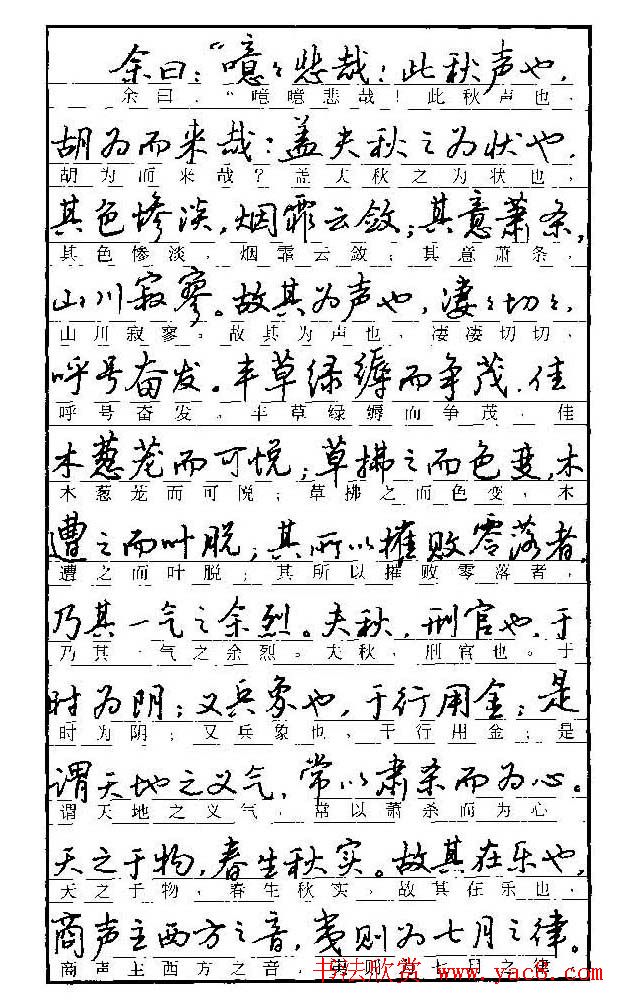 余曰："噫々悲哉！此秋声也，
余曰："噫噫悲哉！此秋声也，
胡为而来哉？盖夫秋之为状也，
胡为而来哉？盖夫秋之为状也，
其色惨淡，烟霏云敛；其意萧条，
其色惨淡，烟霏云敛；其意萧条，
山川寂寥。故其为声也，凄々切々，
山川寂寥。故其为声也，凄凄切切，
呼号奋发。丰草绿缛而争茂，佳
呼号奋发。丰草绿缛而争茂，佳
木葱茏而可悦；草拂之而色变，木
木葱茏而可悦；草拂之而色变，木
遭之而叶脱；其所以摧败零落者，
遭之而叶脱；其所以摧败零落者，
乃其一气之余烈。夫秋，刑官也，于
乃其一气之余烈。夫秋，刑官也。于
时为阴；又兵象也，于行用金；是
时为阴；又兵象也，于行用金；是
谓天地之义气，常以肃杀而为心。
谓天地之义气，常以萧杀而为心
天之于物，春生秋实。故其在乐也，
天之于物，春生秋实，故其在乐也，
商声主西方之音，夷则为七月之律。
商声主西方之音，夷则为七月之律
书法欣赏 www.yac8.com